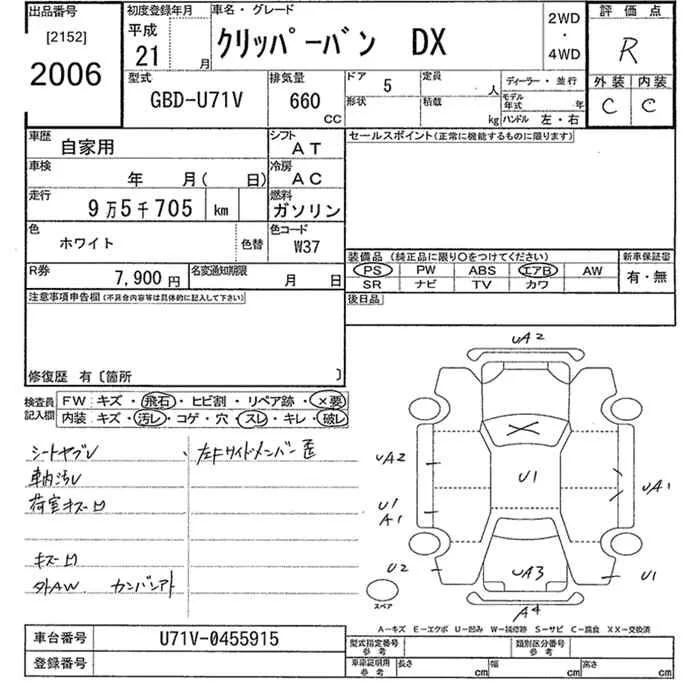 出品番号
[2152]
2006
初度登録年月
平成
21 月
車名・グレード
クリッパーバン DX
2WD
・
4WD
評価点
R
外装 内装
C C
型式
GBD-U71V
排気量
660
CC
ドア 5
形状
定員 人
積載 kg
ディーラー・並行
モデル年式 年
ハンドル 左・右
車歴
自家用
シフト
AT
車検
年 月( 日)
冷房
AC
走行
9万5千705 km
燃料
ガソリン
色
ホワイト
色替
色コード
W37
R券
7,900円
名変通知期限
月 日
セールスポイント(正常に機能するものに限ります)
装備品 (純正品に限り○をつけてください)
PS PW ABS エアB AW
SR ナビ TV カワ
新車保証書
有・無
後日品
注意事項申告欄(不具合内容等は具体的に記入して下さい)
修復歴 有〔箇所 〕
検査員記入欄
FW キズ・飛石・ヒビ割・リペア跡・×要
内装 キズ・汚レ・コゲ・穴・スレ・キレ・破レ
シートヤブレ
車内汚レ
荷室キズ凹
キズ凹
外AW カンバンアト
左Fサイドメンバー歪
UA2
UA2
U1
A1
U2
U1
UA1
U1
UA3
A4
スペア
A-キズ E-エクボ U-凹み W-補修跡 S-サビ C-腐食 XX-交換済
車台番号
U71V-0455915
登録番号
型式指定番号
参考
類別区分番号
参考
車庫証明用
参考
長さ cm
幅 cm
高さ cm